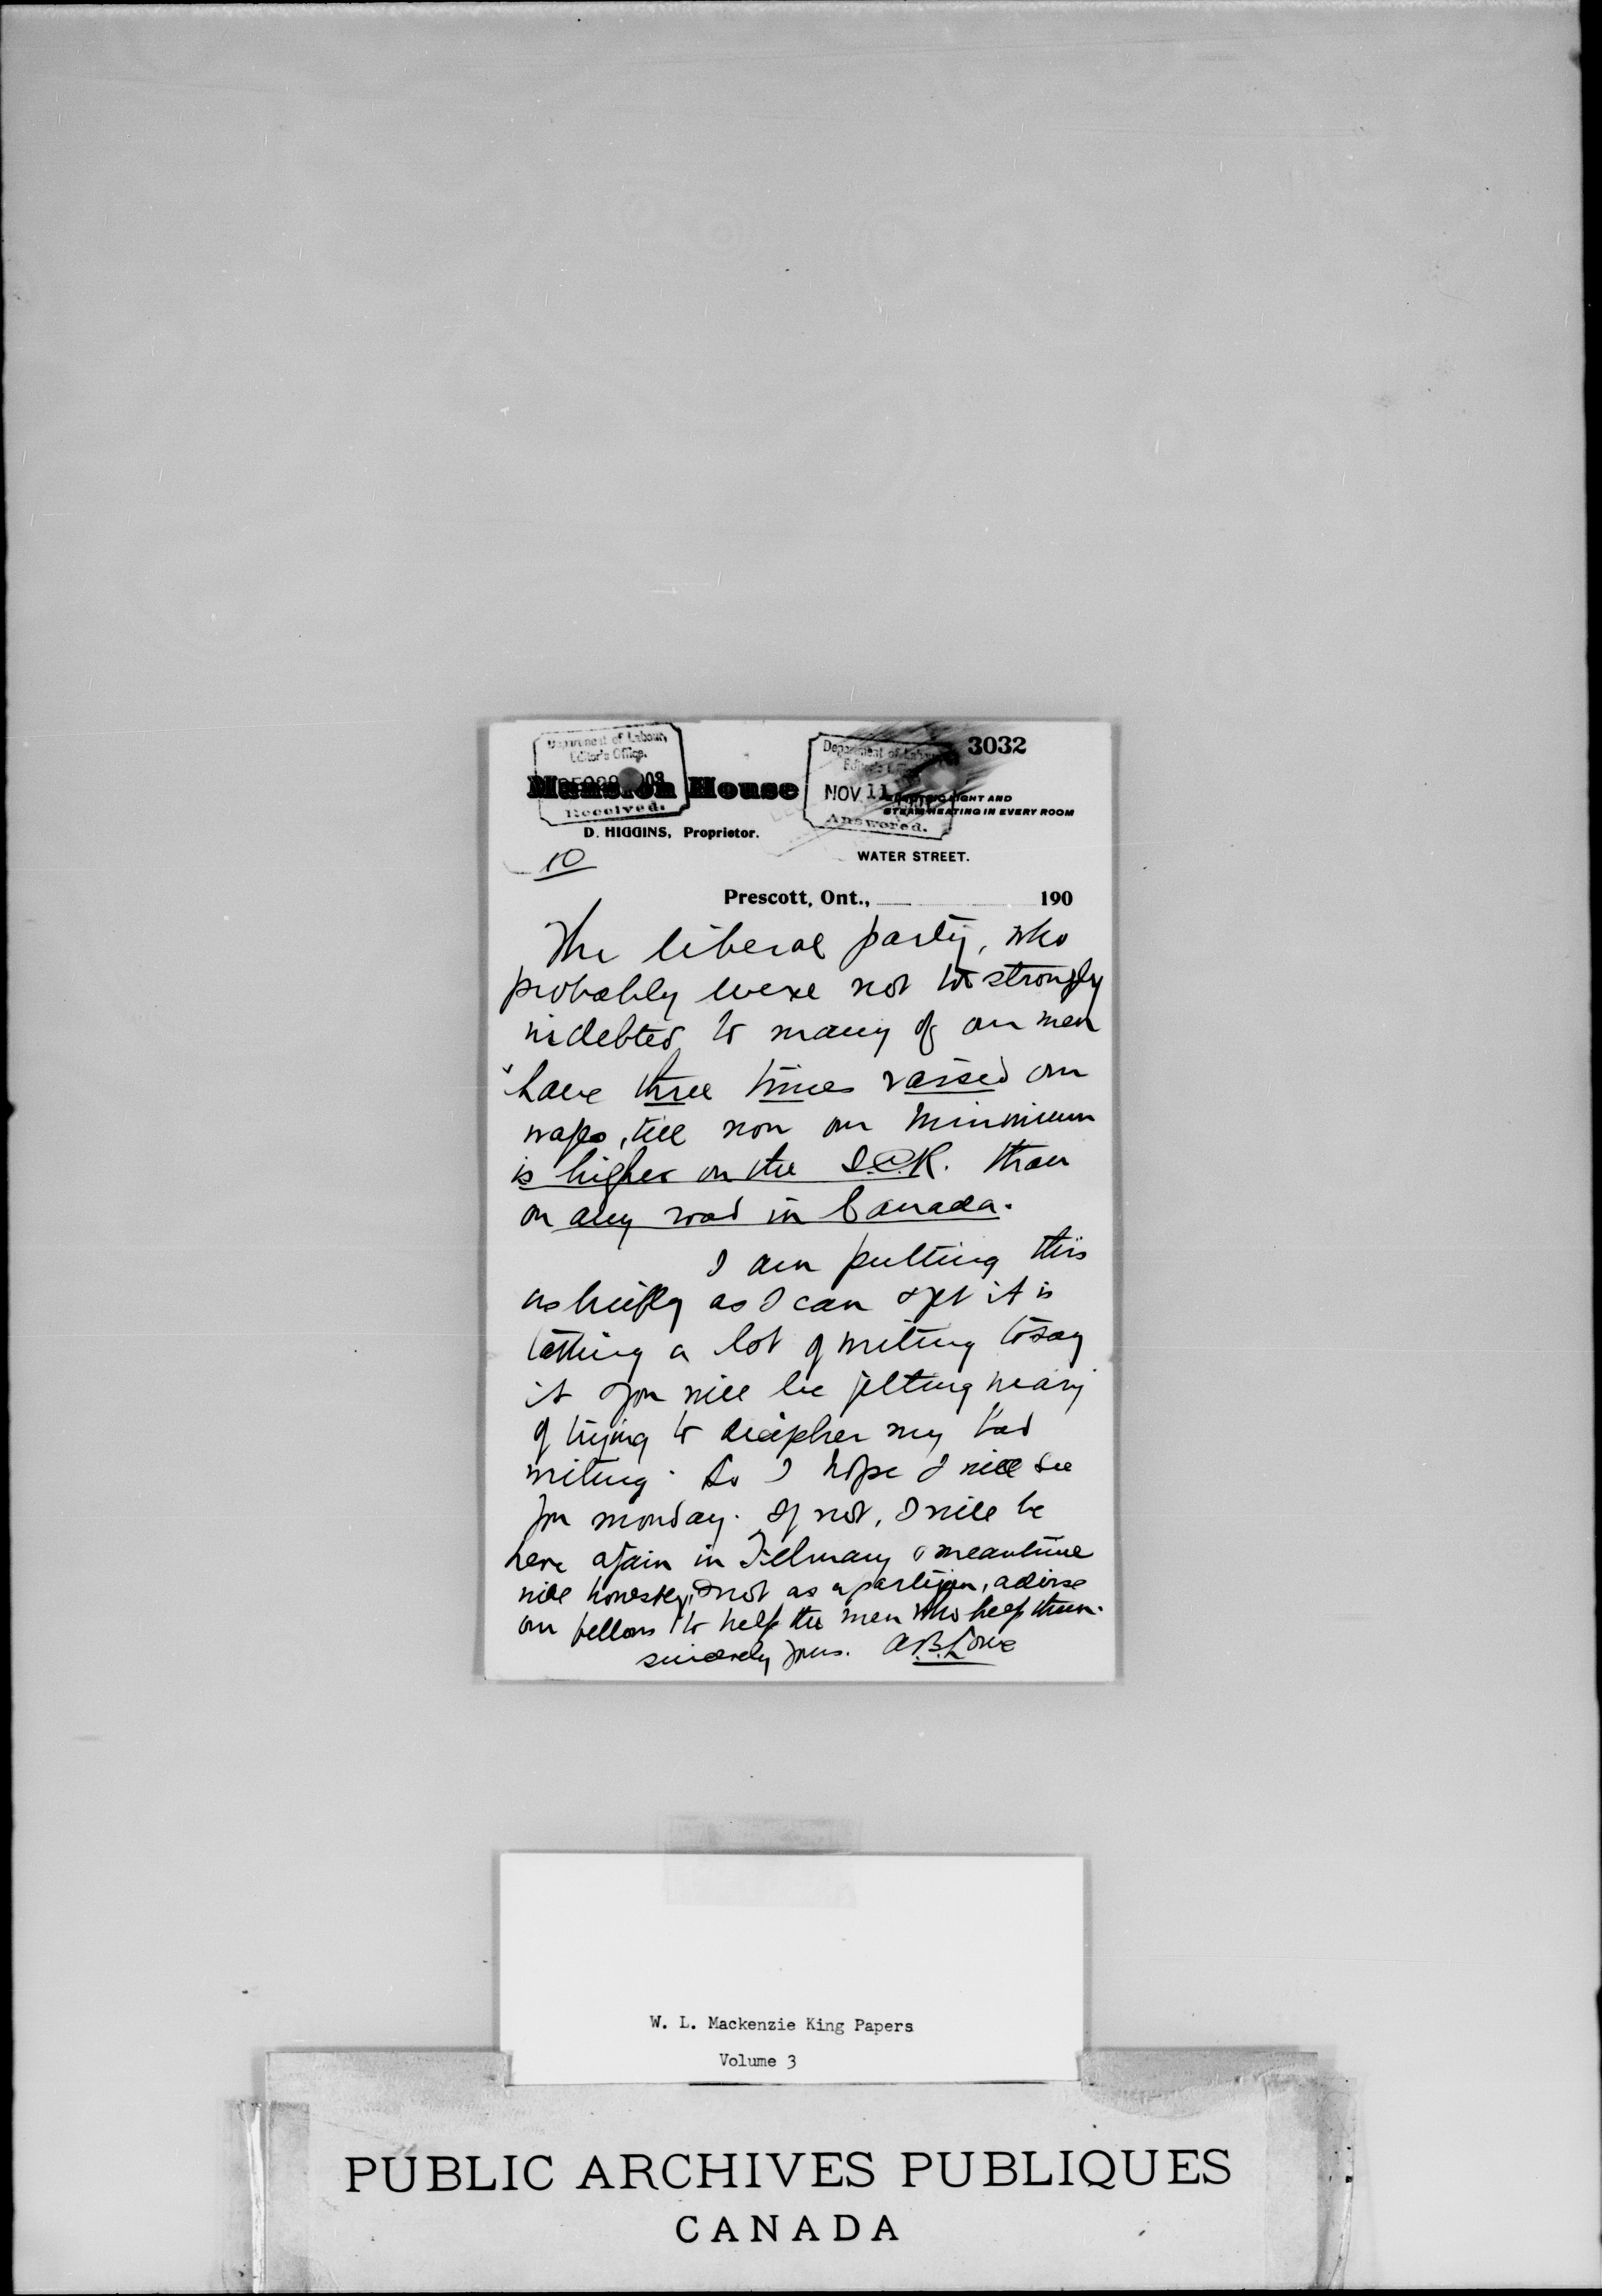 Department of Labour,
Editor's Office.
Received.
Department of Labour
NOV 11
Answered.
3032
Mansion House
ELECTRIC LIGHT AND
STEAM HEATING IN EVERY ROOM
D. HIGGINS, Proprietor.
WATER STREET.
10
Prescott, Ont., 190
The liberal party, who
probably were not so strongly
indebted to many of our men
have three times raised our
wages, till now our minimum
is higher on the I.C.R. than
on any road in Canada.
I am putting this
as briefly as I can & yet it is
taking a lot of writing to say
it & you will be getting weary
of trying to decipher my bad
writing. So I hope I will see
you monday. If not, I will be
here again in February & meantime
will honestly, & not as a partizan, advise
our fellows to help the men who help them.
sincerely yours. A.B. Lowe
W. L. Mackenzie King Papers
Volume 3
PUBLIC ARCHIVES PUBLIQUES
CANADA